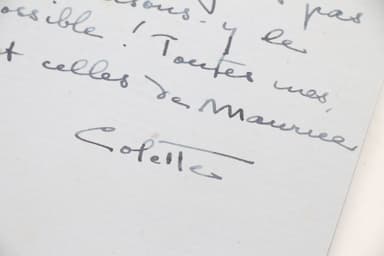 pas
ossible ! y le
Toutes mes
t celles de Maurice
Colette